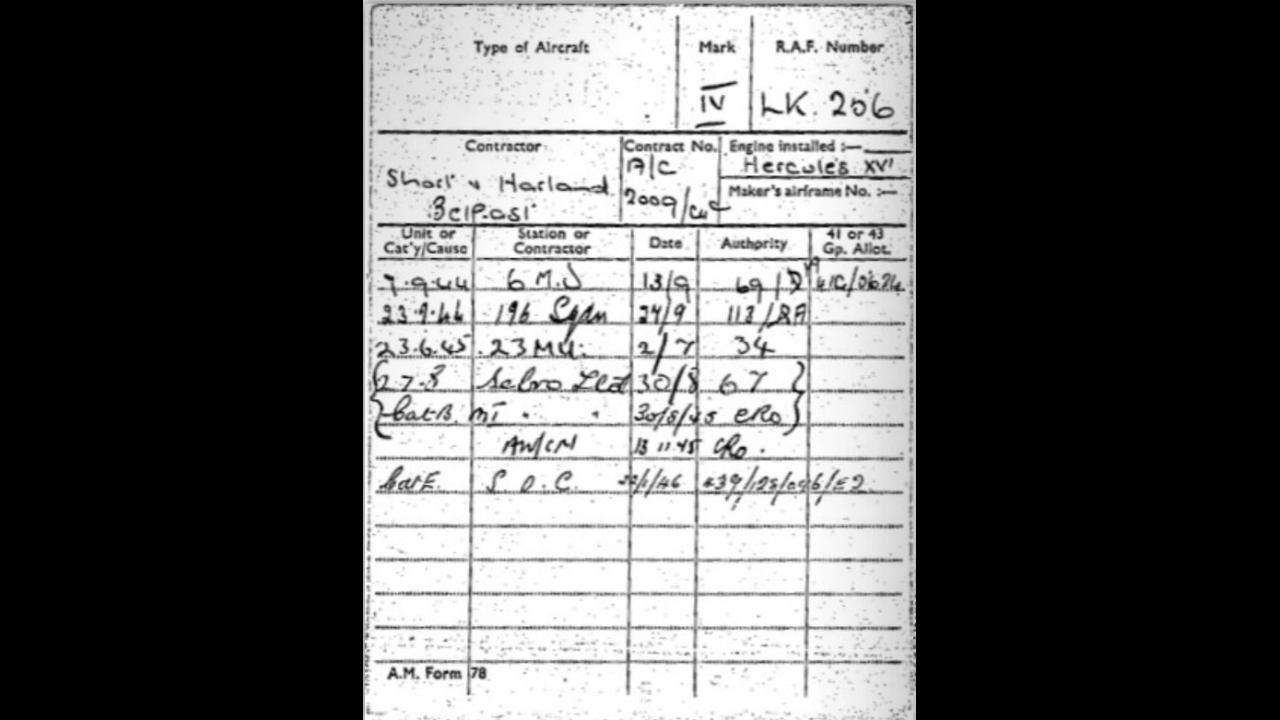 Type of Aircraft Mark R.A.F. Number
IV LK. 206
Contractor Contract No. Engine installed :—
A/C Hercules XVI
Short & Harland Maker's airframe No. :—
Belfast 2009
Unit or Cat'y/Cause Station or Contractor Date Authority 41 or 43 Gp. Allot.
7.9.44 6 M.U 13/9 69
23.9.44 196 Sqdn 24/9 113
23.6.45 23 MU. 2/7 34
27.8 Sebro Ltd 30/8 67
Cat B. MI " " 30/8/45 CRO
AW/CN 13 11 45 CRO.
Cat E. S.O.C. /1/46
A.M. Form 78